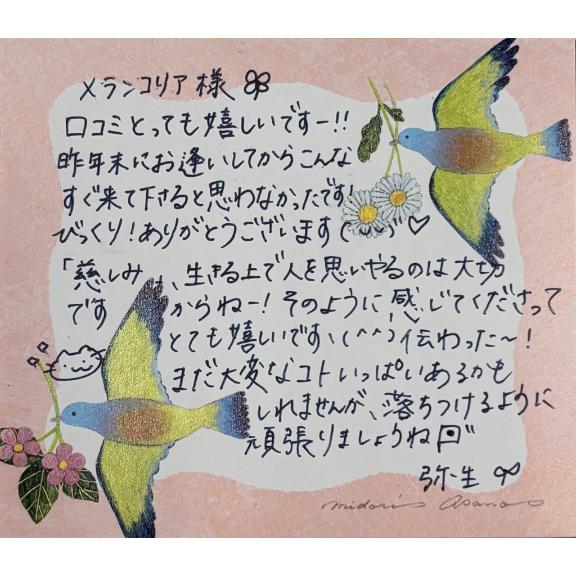 メランコリア様
口コミとっても嬉しいですー!!
昨年末にお逢いしてからこんな
すぐ来て下さると思わなかったです!
びっくり!ありがとうございます(^^)♡
「慈しみ」は、生きる上で人を思いやるのは大切
ですからねー!そのように感じてくださって
とても嬉しいです、(^^)伝わった~!
まだ大変なコトいっぱいあるかも
しれませんが、落ちつけるように
頑張りましょうね
弥生
midori asano